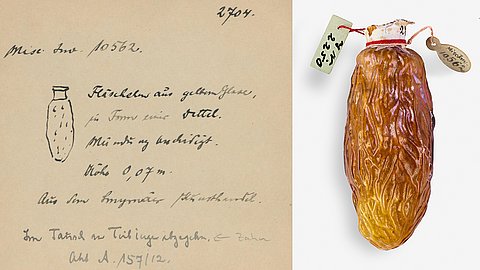 2704.
Misc. Inv. 10562.
Fläschchen aus gelbem Glase,
in Form einer Dattel.
Mündung beschädigt.
Höhe 0,07 m.
Aus dem Smyrnaer Kunsthandel.
Im Tausch an Tübingen abgegeben.
Akt A. 157/12.
2250
10562